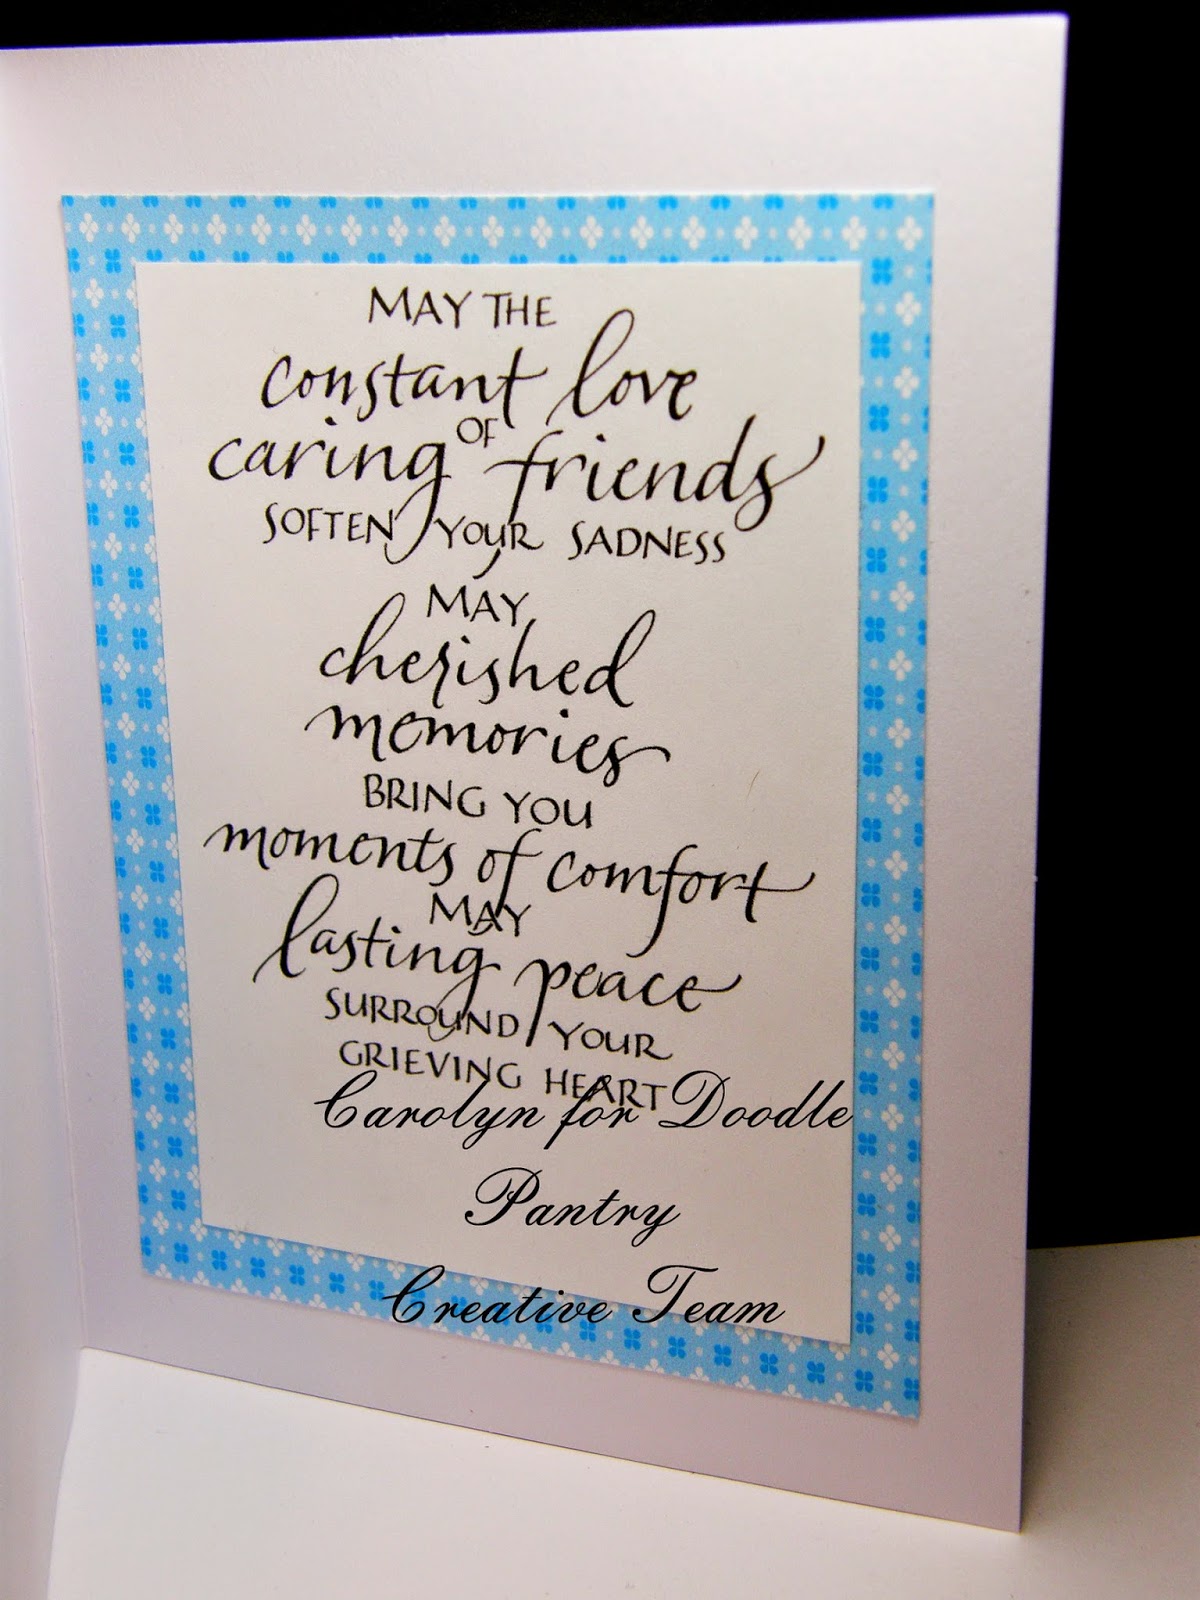 MAY THE
constant love
OF
caring friends
SOFTEN YOUR SADNESS
MAY
cherished
memories
BRING YOU
moments of comfort
MAY
lasting peace
SURROUND YOUR
GRIEVING HEART
Carolyn for Doodle
Pantry
Creative Team